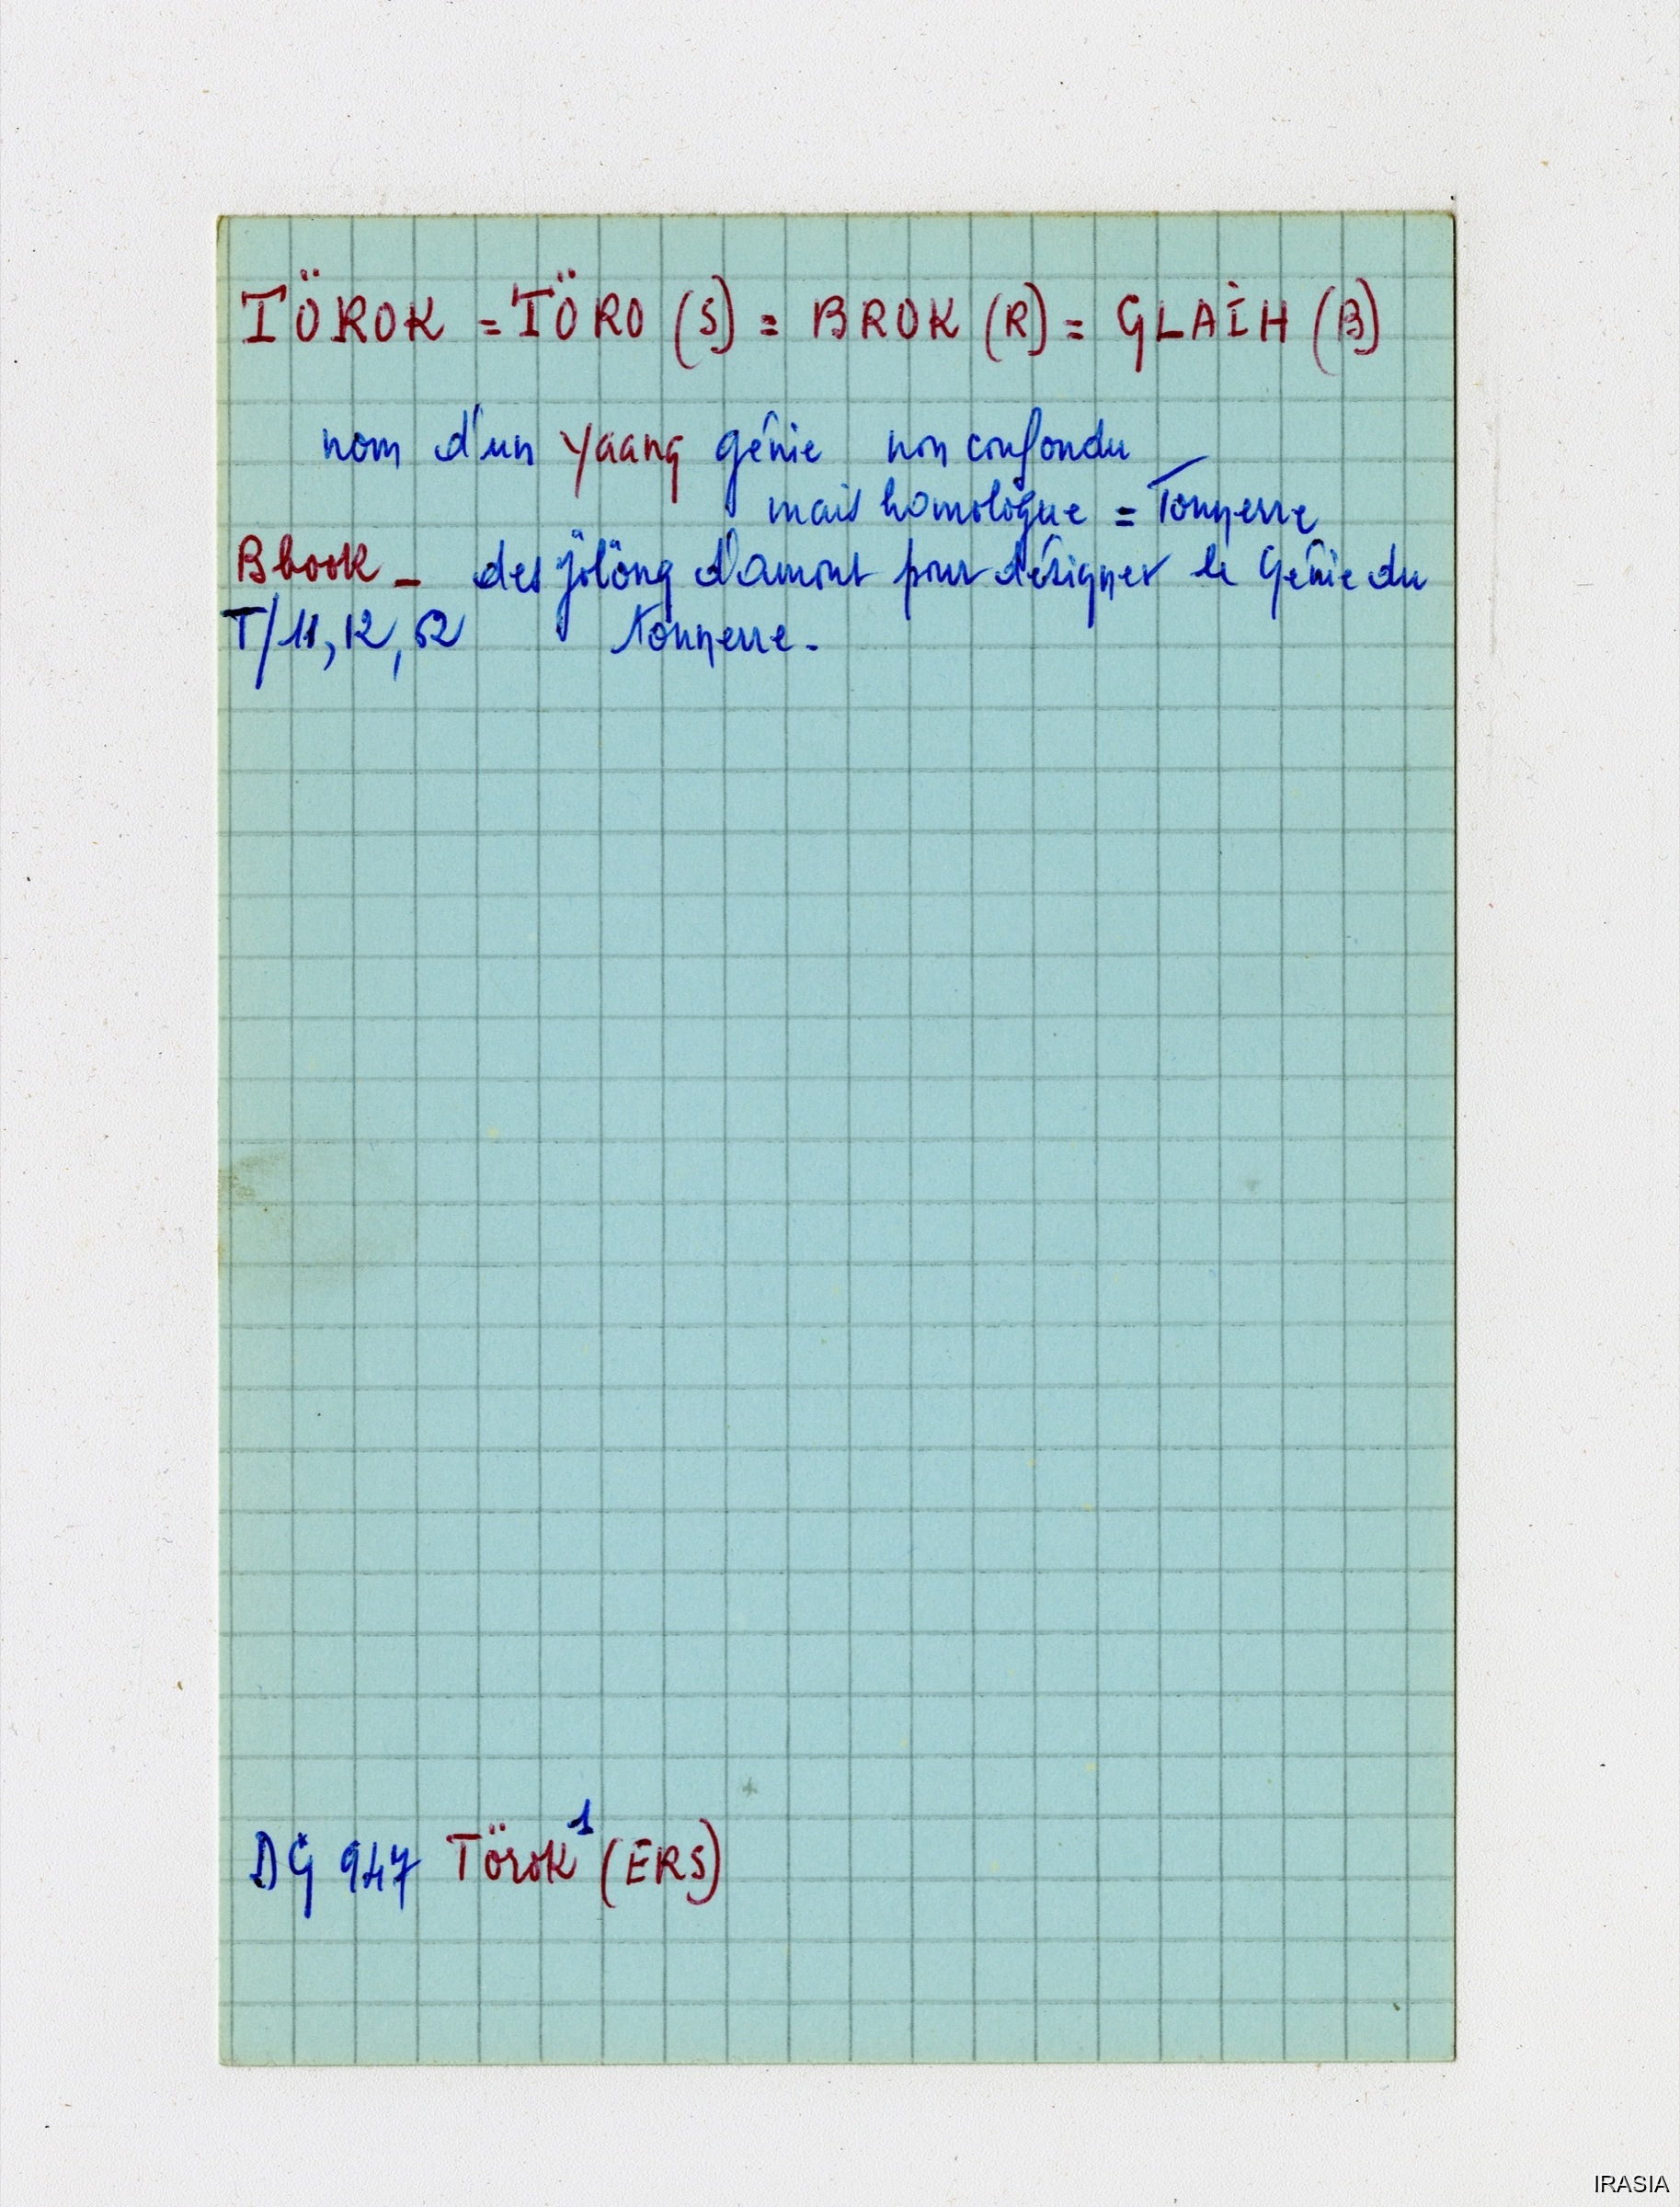 TÖROK = TÖRO (S) = BROK (R) = GLAIH (B)
nom d'un Yaang génie non confondu
mais homologue = Tonnerre
Bbook - des jölöng d'amont pour désigner le Génie du
T/11, 12, 52 tonnerre.
DG 947 Törok¹ (ERS)
IRASIA